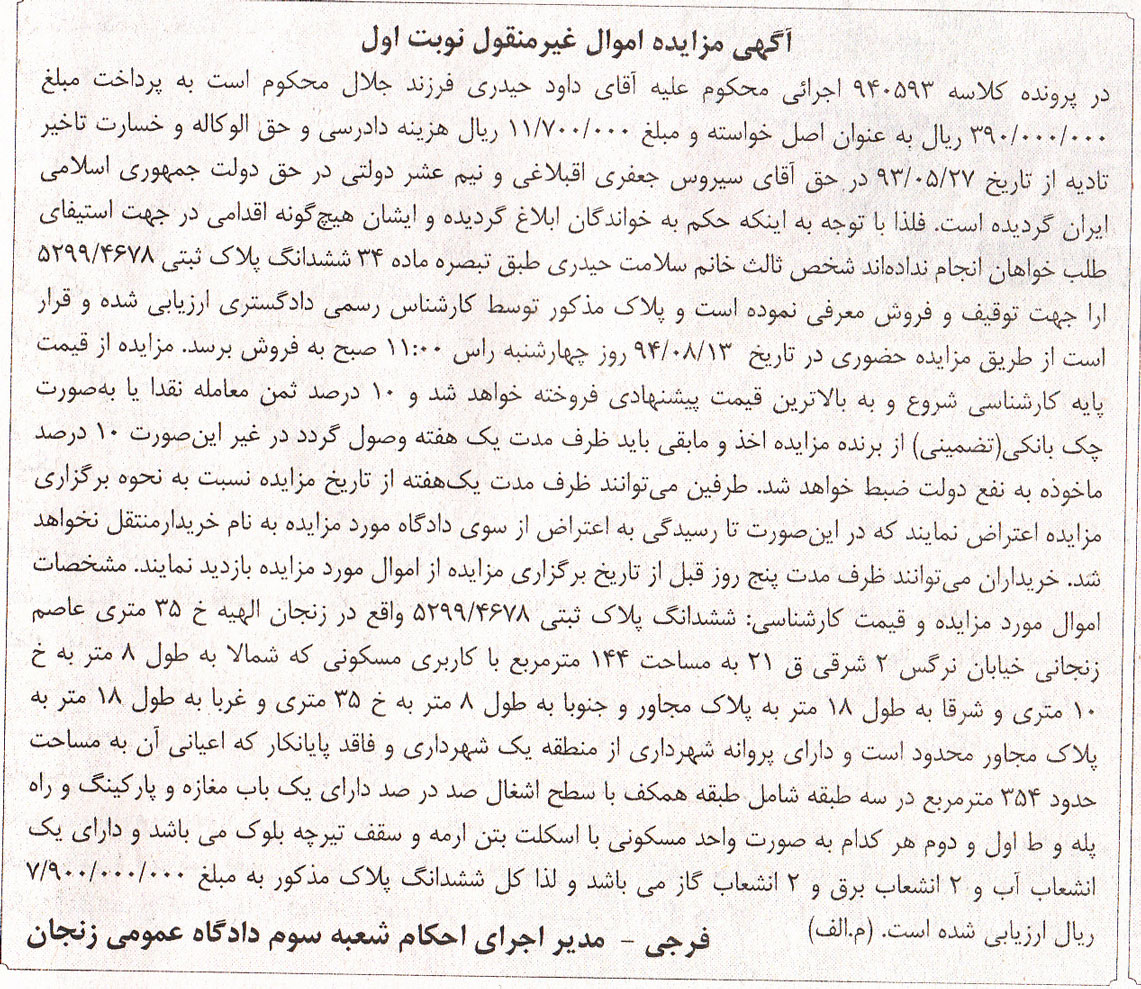 آگهی مزایده اموال غیرمنقول نوبت اول
در پرونده کلاسه ۹۴۰۵۹۳ اجرائی محکوم علیه آقای داود حیدری فرزند جلال محکوم است به پرداخت مبلغ
۳۹۰/۰۰۰/۰۰۰ ریال به عنوان اصل خواسته و مبلغ ۱۱/۷۰۰/۰۰۰ ریال هزینه دادرسی و حق الوکاله و خسارت تاخیر
تادیه از تاریخ ۹۳/۰۵/۲۷ در حق آقای سیروس جعفری اقبلاغی و نیم عشر دولتی در حق دولت جمهوری اسلامی
ایران گردیده است. فلذا با توجه به اینکه حکم به خواندگان ابلاغ گردیده و ایشان هیچ‌گونه اقدامی در جهت استیفای
طلب خواهان انجام نداده‌اند شخص ثالث خانم سلامت حیدری طبق تبصره ماده ۳۴ ششدانگ پلاک ثبتی ۵۲۹۹/۴۶۷۸
ارا جهت توقیف و فروش معرفی نموده است و پلاک مذکور توسط کارشناس رسمی دادگستری ارزیابی شده و قرار
است از طریق مزایده حضوری در تاریخ ۹۴/۰۸/۱۳ روز چهارشنبه راس ۱۱:۰۰ صبح به فروش برسد. مزایده از قیمت
پایه کارشناسی شروع و به بالاترین قیمت پیشنهادی فروخته خواهد شد و ۱۰ درصد ثمن معامله نقدا یا به‌صورت
چک بانکی(تضمینی) از برنده مزایده اخذ و مابقی باید ظرف مدت یک هفته وصول گردد در غیر این‌صورت ۱۰ درصد
ماخوذه به نفع دولت ضبط خواهد شد. طرفین می‌توانند ظرف مدت یک‌هفته از تاریخ مزایده نسبت به نحوه برگزاری
مزایده اعتراض نمایند که در این‌صورت تا رسیدگی به اعتراض از سوی دادگاه مورد مزایده به نام خریدارمنتقل نخواهد
شد. خریداران می‌توانند ظرف مدت پنج روز قبل از تاریخ برگزاری مزایده از اموال مورد مزایده بازدید نمایند. مشخصات
اموال مورد مزایده و قیمت کارشناسی: ششدانگ پلاک ثبتی ۵۲۹۹/۴۶۷۸ واقع در زنجان الهیه خ ۳۵ متری عاصم
زنجانی خیابان نرگس ۲ شرقی ق ۲۱ به مساحت ۱۴۴ مترمربع با کاربری مسکونی که شمالا به طول ۸ متر به خ
۱۰ متری و شرقا به طول ۱۸ متر به پلاک مجاور و جنوبا به طول ۸ متر به خ ۳۵ متری و غربا به طول ۱۸ متر به
پلاک مجاور محدود است و دارای پروانه شهرداری از منطقه یک شهرداری و فاقد پایانکار که اعیانی آن به مساحت
حدود ۳۵۴ مترمربع در سه طبقه شامل طبقه همکف با سطح اشغال صد در صد دارای یک باب مغازه و پارکینگ و راه
پله و ط اول و دوم هر کدام به صورت واحد مسکونی با اسکلت بتن ارمه و سقف تیرچه بلوک می باشد و دارای یک
انشعاب آب و ۲ انشعاب برق و ۲ انشعاب گاز می باشد و لذا کل ششدانگ پلاک مذکور به مبلغ ۷/۹۰۰/۰۰۰/۰۰۰
ریال ارزیابی شده است. (م.الف)
فرجی - مدیر اجرای احکام شعبه سوم دادگاه عمومی زنجان